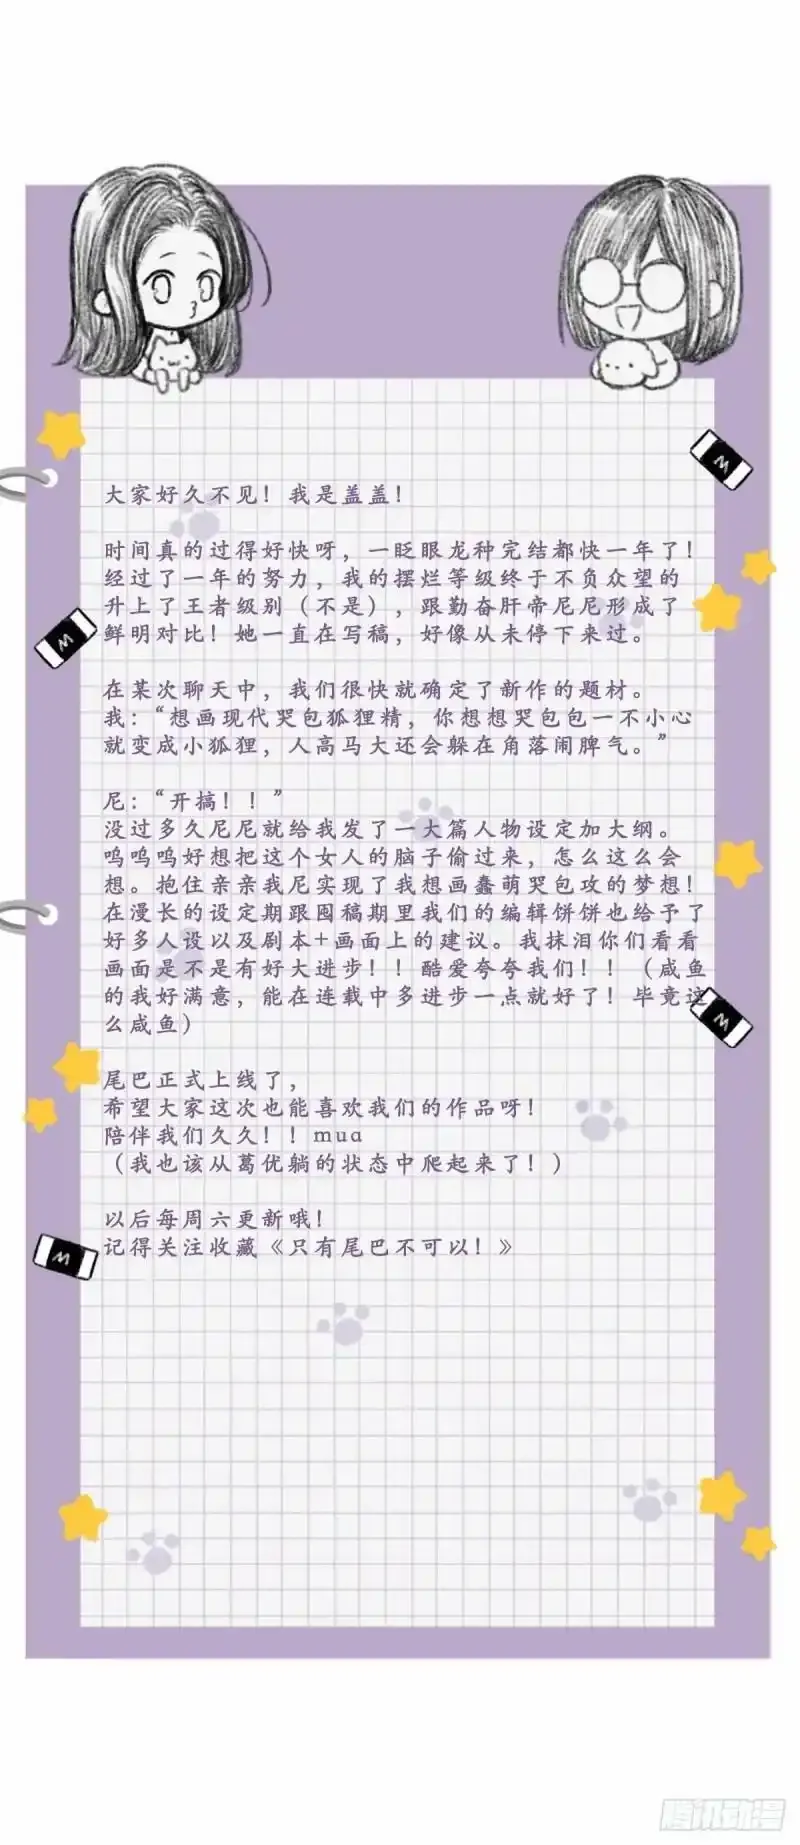 大家好久不见！我是盖盖！
时间真的过得好快呀，一眨眼龙种完结都快一年了！
经过了一年的努力，我的摆烂等级终于不负众望的
升上了王者级别（不是），跟勤奋肝帝尼尼形成了
鲜明对比！她一直在写稿，好像从未停下来过。
在某次聊天中，我们很快就确定了新作的题材。
我：“想画现代哭包狐狸精，你想想哭包包一不小心
就变成小狐狸，人高马大还会躲在角落闹脾气。”
尼：“开搞！！”
没过多久尼尼就给我发了一大篇人物设定加大纲。
呜呜呜好想把这个女人的脑子偷过来，怎么这么会
想。抱住亲亲我尼实现了我想画蠢萌哭包攻的梦想！
在漫长的设定期跟囤稿期里我们的编辑饼饼也给予了
好多人设以及剧本+画面上的建议。我抹泪你们看看
画面是不是有好大进步！！酷爱夸夸我们！！（咸鱼
的我好满意，能在连载中多进步一点就好了！毕竟这
么咸鱼）
尾巴正式上线了，
希望大家这次也能喜欢我们的作品呀！
陪伴我们久久！！mua
（我也该从葛优躺的状态中爬起来了！）
以后每周六更新哦！
记得关注收藏《只有尾巴不可以！》
腾讯动漫